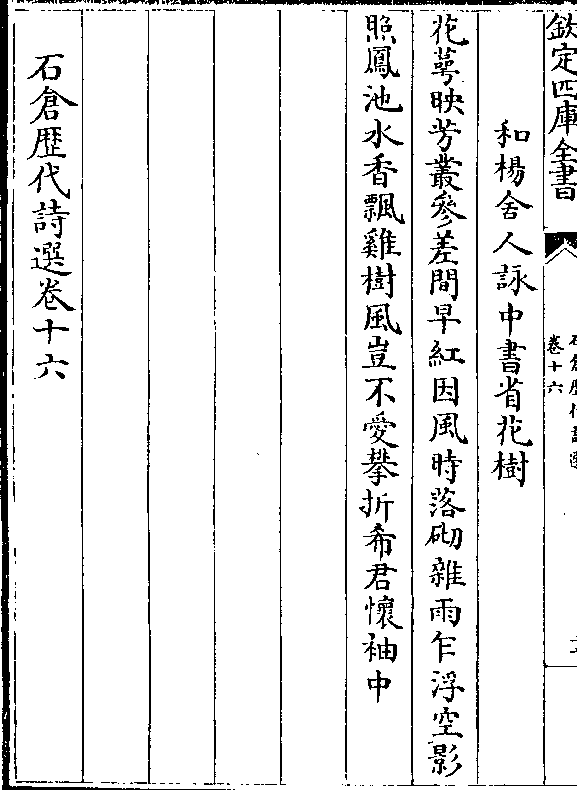 欽定四庫全書
卷十六
和楊舍人詠中書省花樹
花萼映芳叢參差間早紅因風時落砌雜雨乍浮空影
照鳳池水香飄雞樹風豈不愛攀折希君懷袖中
石倉歷代詩選卷十六